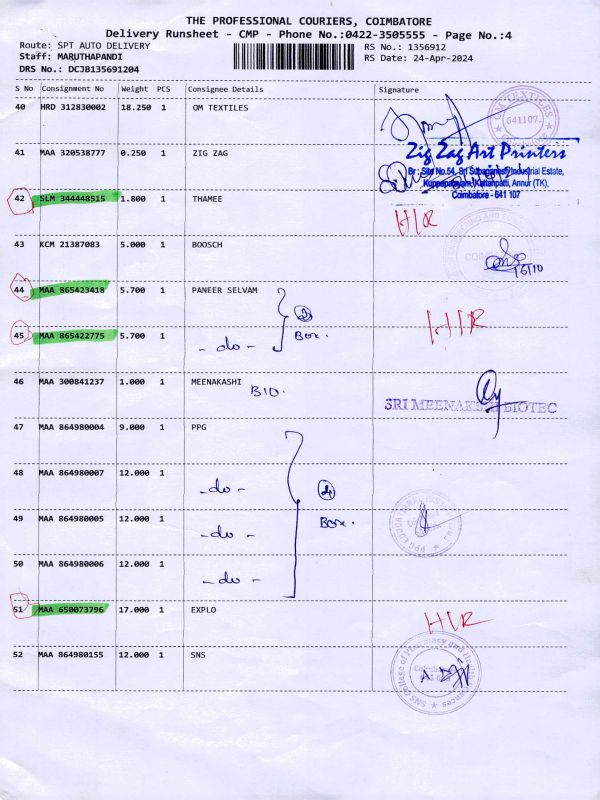 THE PROFESSIONAL COURIERS, COIMBATORE
Delivery Runsheet - CMP - Phone No.:0422-3505555 - Page No.:4
Route: SPT AUTO DELIVERY
RS No.: 1356912
Staff: MARUTHAPANDI
RS Date: 24-Apr-2024
DRS No.: DCJB135691204
S No Consignment No Weight PCS Consignee Details Signature
40 HRD 312830002 18.250 1 OM TEXTILES
OM TEXTILES
641107.
41 MAA 320538777 0.250 1 ZIG ZAG
Zig Zag Art Printers
Br : Site No.54, Sri Industrial Estate,
Kattanpatti, Annur (TK),
Coimbatore - 641 107
42 SLM 344448515 1.800 1 THAMEE
HIR
43 KCM 21387083 5.000 1 BOOSCH
44 MAA 865423418 5.700 1 PANEER SELVAM
2
Box.
HIR
45 MAA 865422775 5.700 1 - do -
46 MAA 300841237 1.000 1 MEENAKASHI
BIO.
SRI MEENAKSHI BIOTEC
47 MAA 864980004 9.000 1 PPG
48 MAA 864980007 12.000 1 - do -
Box.
49 MAA 864980005 12.000 1 - do -
PPG EDUCATIONAL
50 MAA 864980006 12.000 1 - do -
51 MAA 650073796 17.000 1 EXPLO
HIR
52 MAA 864980155 12.000 1 SNS
SNS College of Pharmacy and Health Sciences